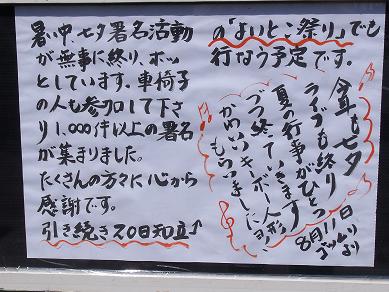 暑中七夕署名活動
が無事に終り、ホッ
としています。車椅子
の人も参加して下さ
り1,000件以上の署名
が集まりました。
たくさんの方々に心から
感謝です。
引き続き20日知立
の「よいとこ祭り」でも
行なう予定です。
今年も七夕
ライブも終り
夏の行事がひとつ
づつ終ていきます
かわいいキーボー人形
もらいましたヨ
8月11日
より